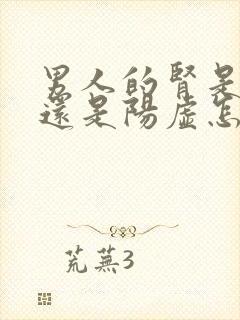 男人的腎是
還是陽虛怎
荒蕪3